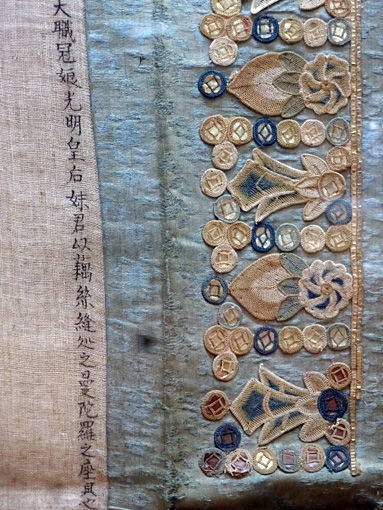 大職冠娘光明皇后妹君以藕絲縫処之曼陀羅之座具也